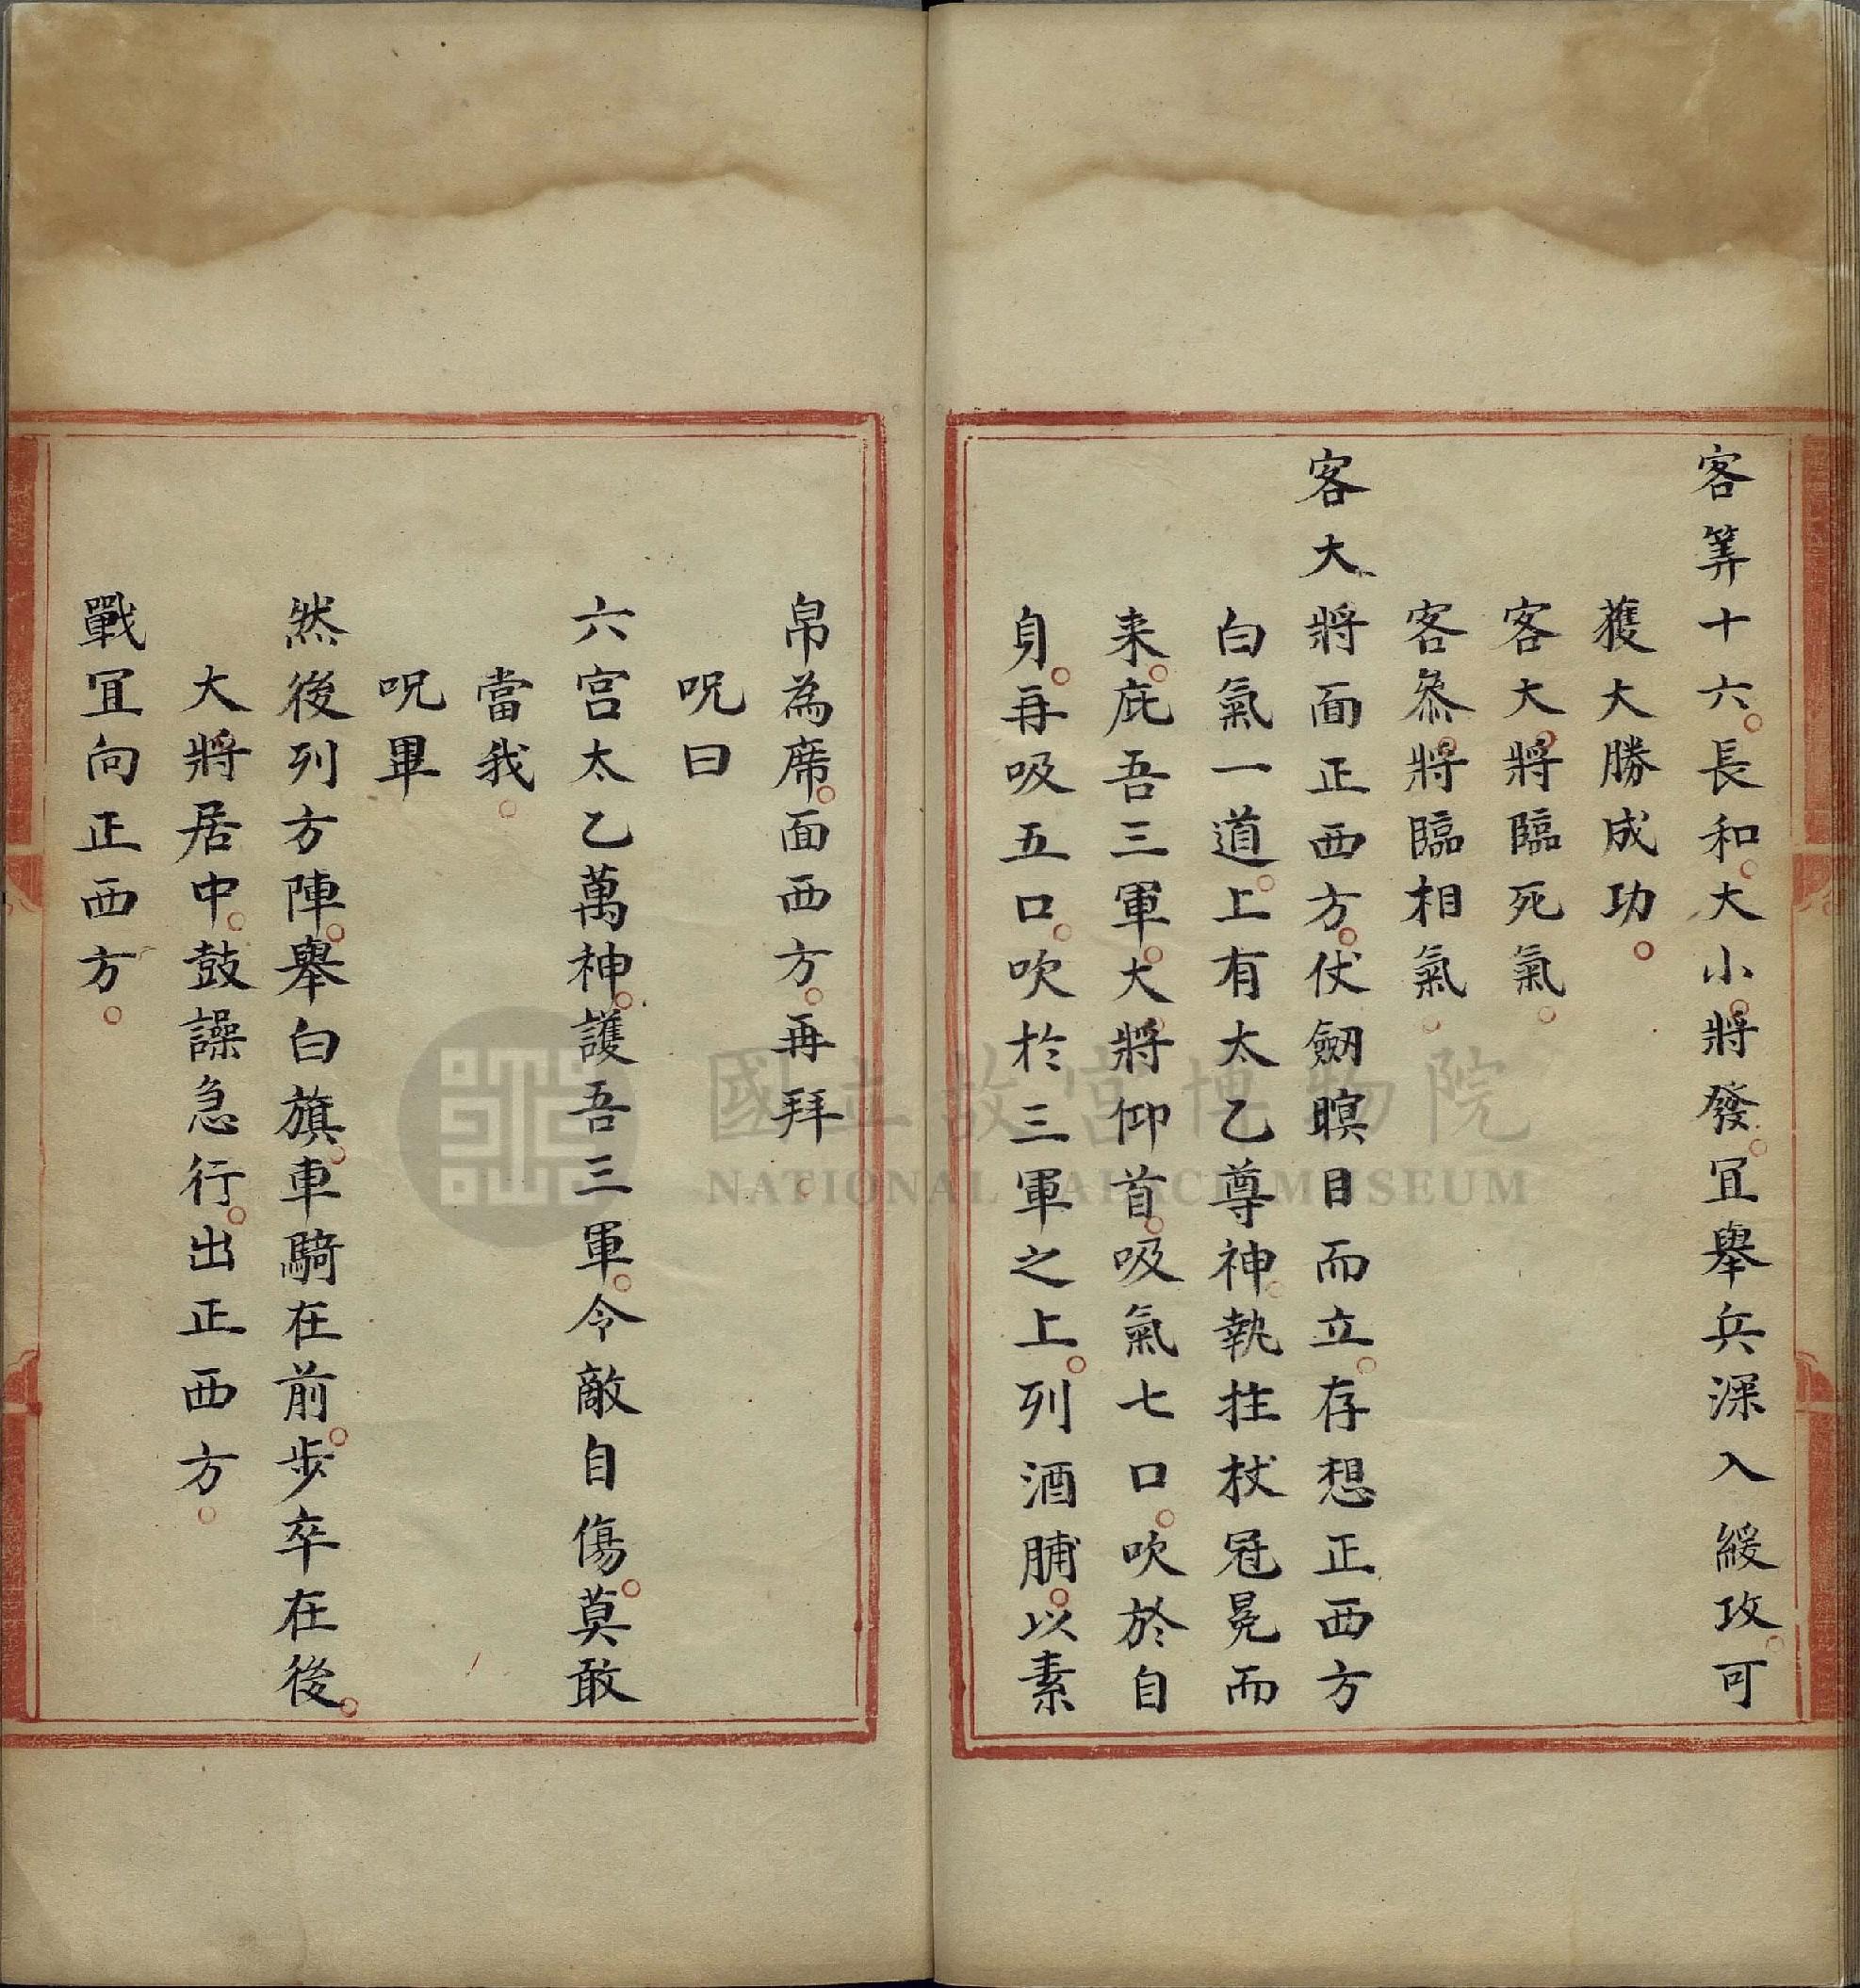 客筭十六。長和。大小將發。宜舉兵深入緩攻。可
獲大勝成功。
客大將臨死氣。
客叅將臨相氣。
客大將面正西方。伏劒瞑目而立。存想正西方
白氣一道。上有太乙尊神。執拄杖冠冕而
来。庇吾三軍。大將仰首。吸氣七口。吹於自
身。再吸五口。吹於三軍之上。列酒脯。以素
帛為席。面西方。再拜
呪曰
六宫太乙萬神。護吾三軍。令敵自傷。莫敢
當我。
呪畢
然後列方陣。舉白旗。車騎在前。步卒在後。
大將居中。鼓譟急行。出正西方。
戰宜向正西方。
國立故宮博物院
NATIONAL PALACE MUSEUM